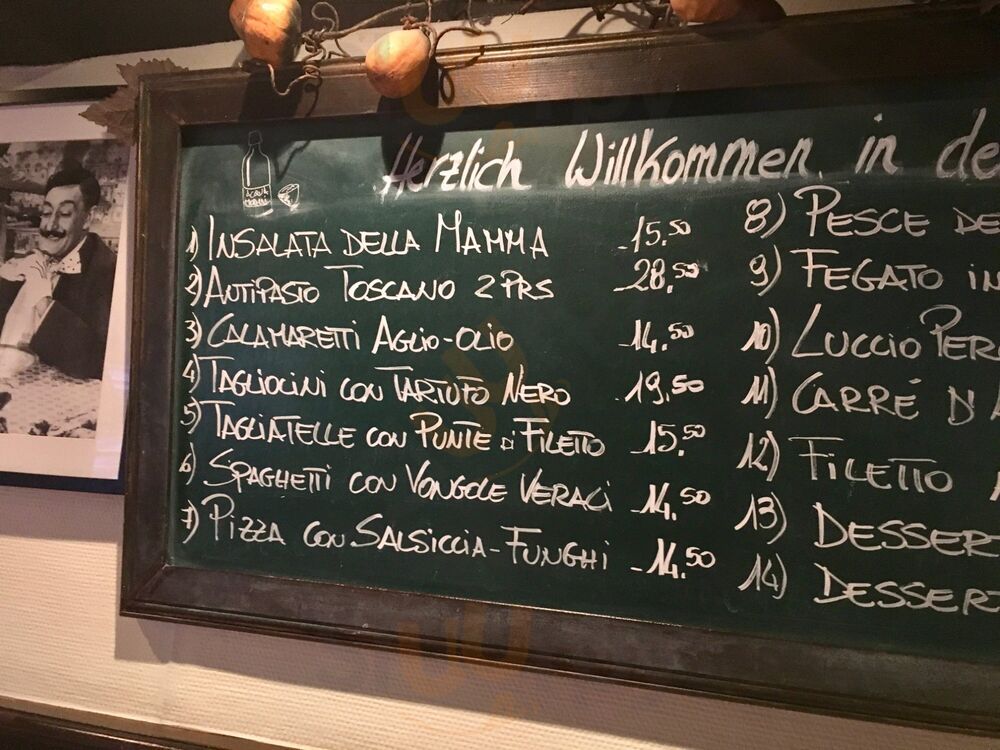 Herzlich Willkommen in de
ACQUA
1) INSALATA DELLA MAMMA -15.50
2) ANTIPASTO TOSCANO 2 PRS -28.50
3) CALAMARETTI AGLIO-OLIO -14.50
4) TAGLIOLINI CON TARTUFO NERO -19.50
5) TAGLIATELLE CON PUNTE D'FILETTO 15.50
6) SPAGHETTI CON VONGOLE VERACI 14.50
7) PIZZA CON SALSICCIA-FUNGHI -14.50
8) PESCE DE
9) FEGATO IN
10) LUCCIO PER
11) CARRÉ D'A
12) FILETTO
13) DESSER
14) DESSER